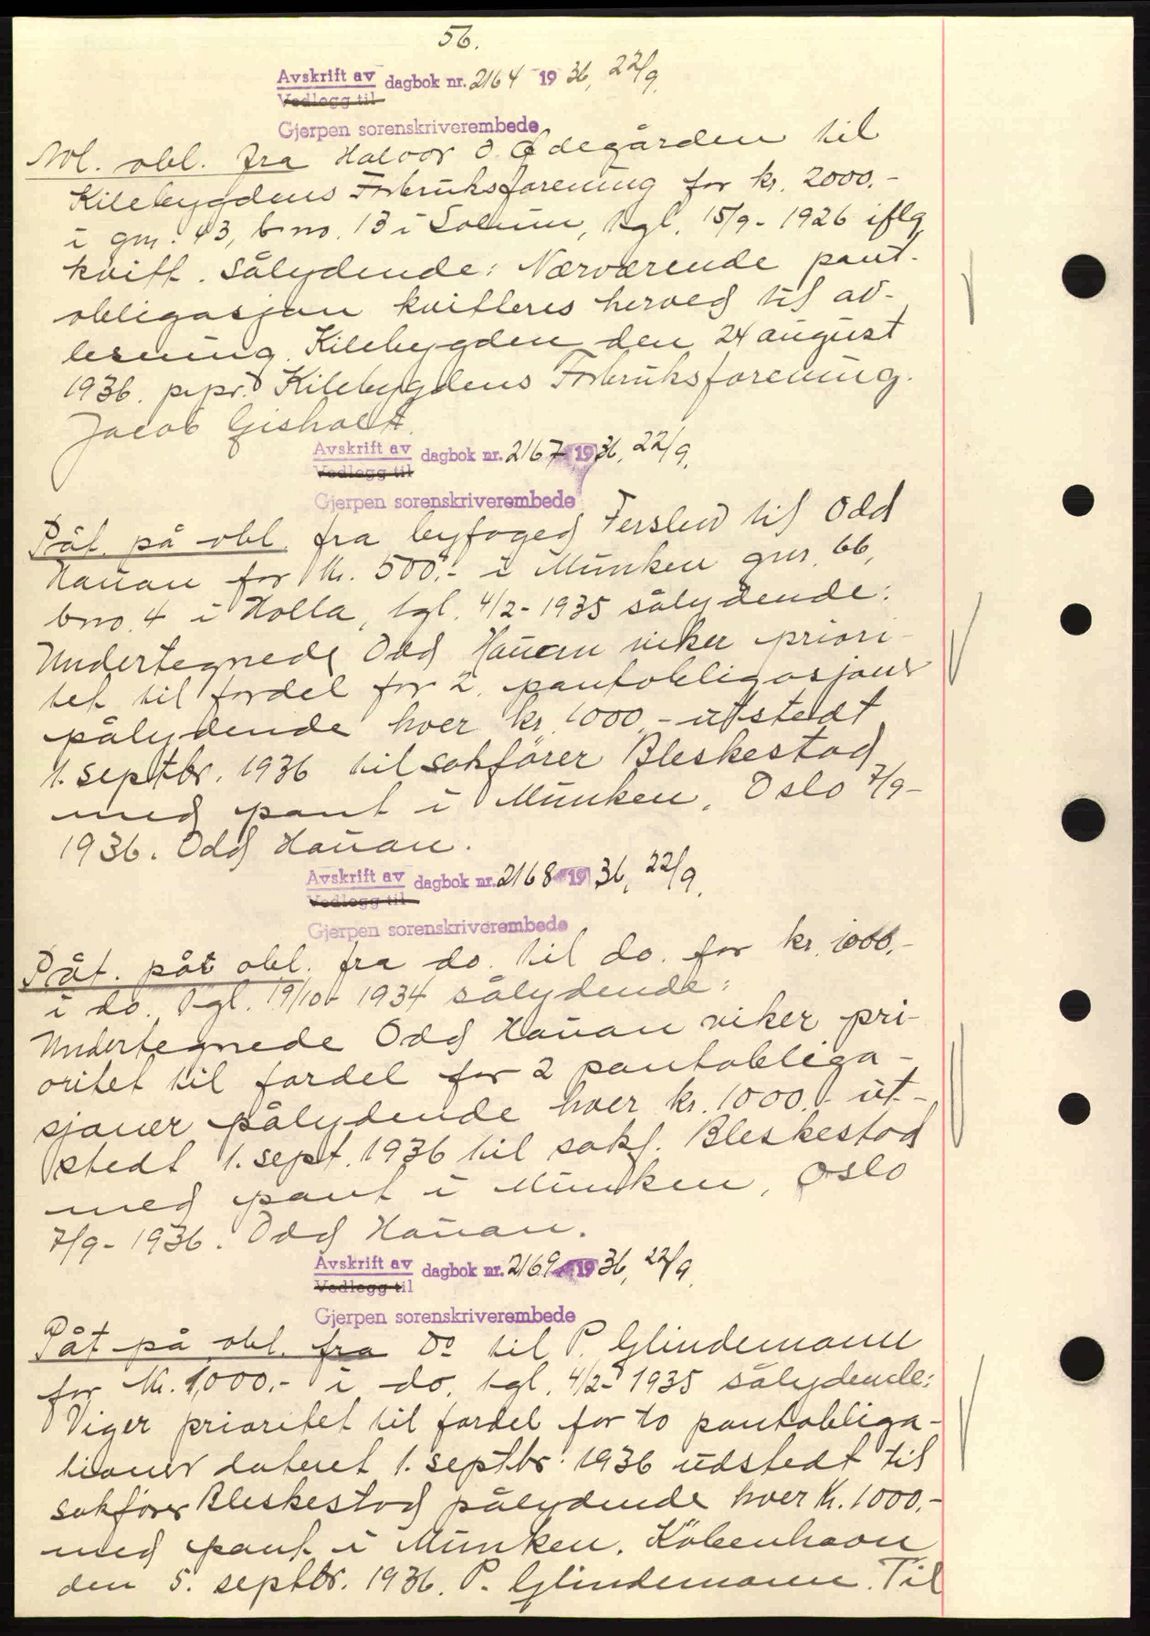 56.
Avskrift av dagbok nr. 2164 1936, 22/9.
Vedlegg til
Gjerpen sorenskriverembede
Avl. obl. fra Halvor O. Ødegården til
Kilebygdens Forbruksforening for kr. 2000.-
i gnr. 43, bno. 13 i Solum, tgl. 15/9-1926 iflg.
kvitt. sålydende: Nærværende pant-
obligasjon kvitteres herved til av-
lesning. Kilebygden den 24 august
1936. pr.pr. Kilebygdens Forbruksforening.
Jacob Gisholt.
Avskrift av dagbok nr. 2167 1936, 22/9.
Vedlegg til
Gjerpen sorenskriverembede
Påt. på obl. fra byfoged Ferslew til Odd
Hauan for kr. 500.- i Munken gnr. 66,
bno. 4 i Holla, tgl. 4/2-1935 sålydende:
Undertegnede Odd Hauan viker priori-
tet til fordel for 2 pantobligasjoner
pålydende hver kr. 1000.- utstedt
1. septbr. 1936 til sakfører Bleskestad
med pant i Munken. Oslo 7/9-
1936. Odd Hauan.
Avskrift av dagbok nr. 2168 1936, 22/9.
Vedlegg til
Gjerpen sorenskriverembede
Påt. på obl. fra do. til do. for kr. 1000.-
i do. tgl. 19/10-1934 sålydende:
Undertegnede Odd Hauan viker pri-
oritet til fordel for 2 pantobliga-
sjoner pålydende hver kr. 1000.- ut-
stedt 1. sept. 1936 til sakf. Bleskestad
med pant i Munken, Oslo
7/9-1936. Odd Hauan.
Avskrift av dagbok nr. 2169 1936, 22/9.
Vedlegg til
Gjerpen sorenskriverembede
Påt på obl. fra Do til P. Glindemann
for kr. 1,000.- i do. tgl. 4/2-1935 sålydende:
Viger prioritet til fordel for to pantobliga-
tioner dateret 1. septbr. 1936 udstedt til
sakfører Bleskestad pålydende hver kr. 1000.-
med pant i Munken. København
den 5. septbr. 1936. P. Glindemann. Til